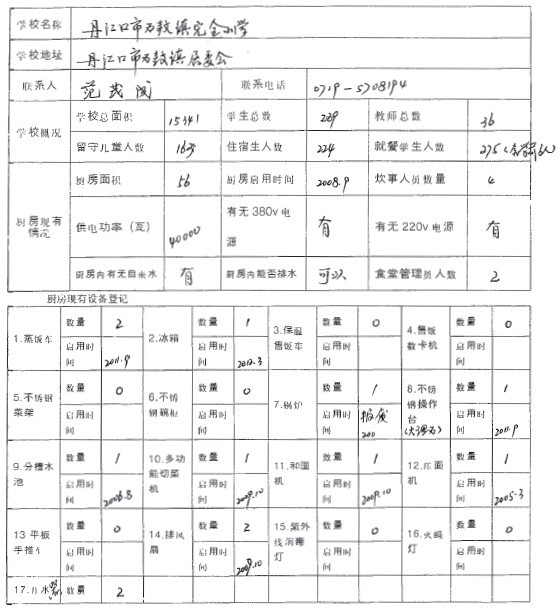 学校名称 丹江口市
学校地址 丹江口市
联系人 联系电话 0719-5708194
学校概况 学校总面积 15341 学生总数 239 教师总数 36
留守儿童人数 163 住宿生人数 224 就餐学生人数 275
厨房现有情况 厨房面积 56 厨房启用时间 2008.9 炊事人员数量 4
供电功率(瓦) 40000 有无380v电源 有 有无220v电源 有
厨房内有无自来水 有 厨房内能否排水 可以 食堂管理员人数 2
厨房现有设备登记
1.蒸饭车 数量 2 2.冰箱 数量 1 3.保温售饭车 数量 0 4.售饭数卡机 数量 0
启用时间 2011.9 启用时间 2012.3 启用时间 启用时间
5.不锈钢菜架 数量 0 6.不锈钢碗柜 数量 0 7.锅炉 数量 1 8.不锈钢操作台 数量 1
启用时间 启用时间 启用时间 报废 200 启用时间 2011.9
9.分槽水池 数量 1 10.多功能切菜机 数量 1 11.和面机 数量 1 12.压面机 数量 1
启用时间 2006.8 启用时间 2009.10 启用时间 2009.10 启用时间 2005.3
13 平板手推车 数量 0 14.排风扇 数量 2 15.紫外线消毒灯 数量 0 16.灭蝇灯 数量 0
启用时间 启用时间 2009.10 启用时间 启用时间
17.开水 数量 2